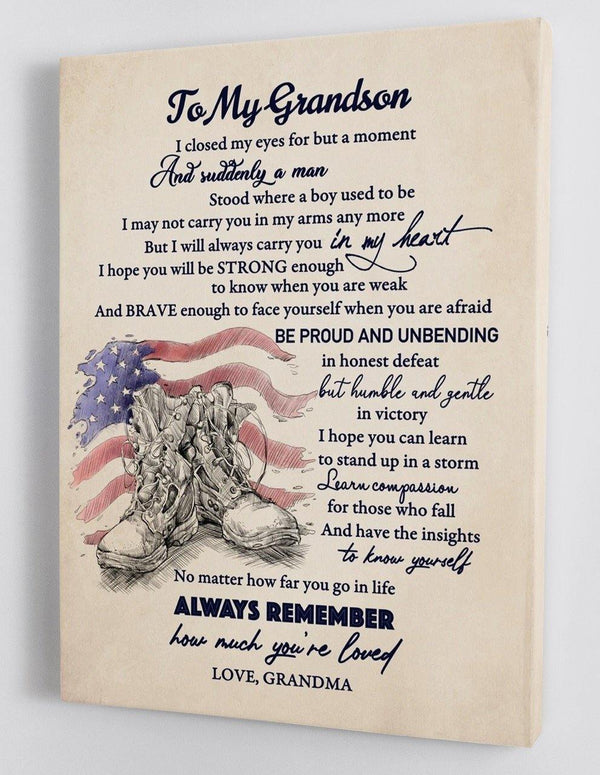 To My Grandson
I closed my eyes for but a moment
And suddenly a man
Stood where a boy used to be
I may not carry you in my arms any more
But I will always carry you in my heart
I hope you will be STRONG enough
to know when you are weak
And BRAVE enough to face yourself when you are afraid
BE PROUD AND UNBENDING
in honest defeat
but humble and gentle
in victory
I hope you can learn
to stand up in a storm
Learn compassion
for those who fall
And have the insights
to know yourself
No matter how far you go in life
ALWAYS REMEMBER
how much you're loved
LOVE, GRANDMA